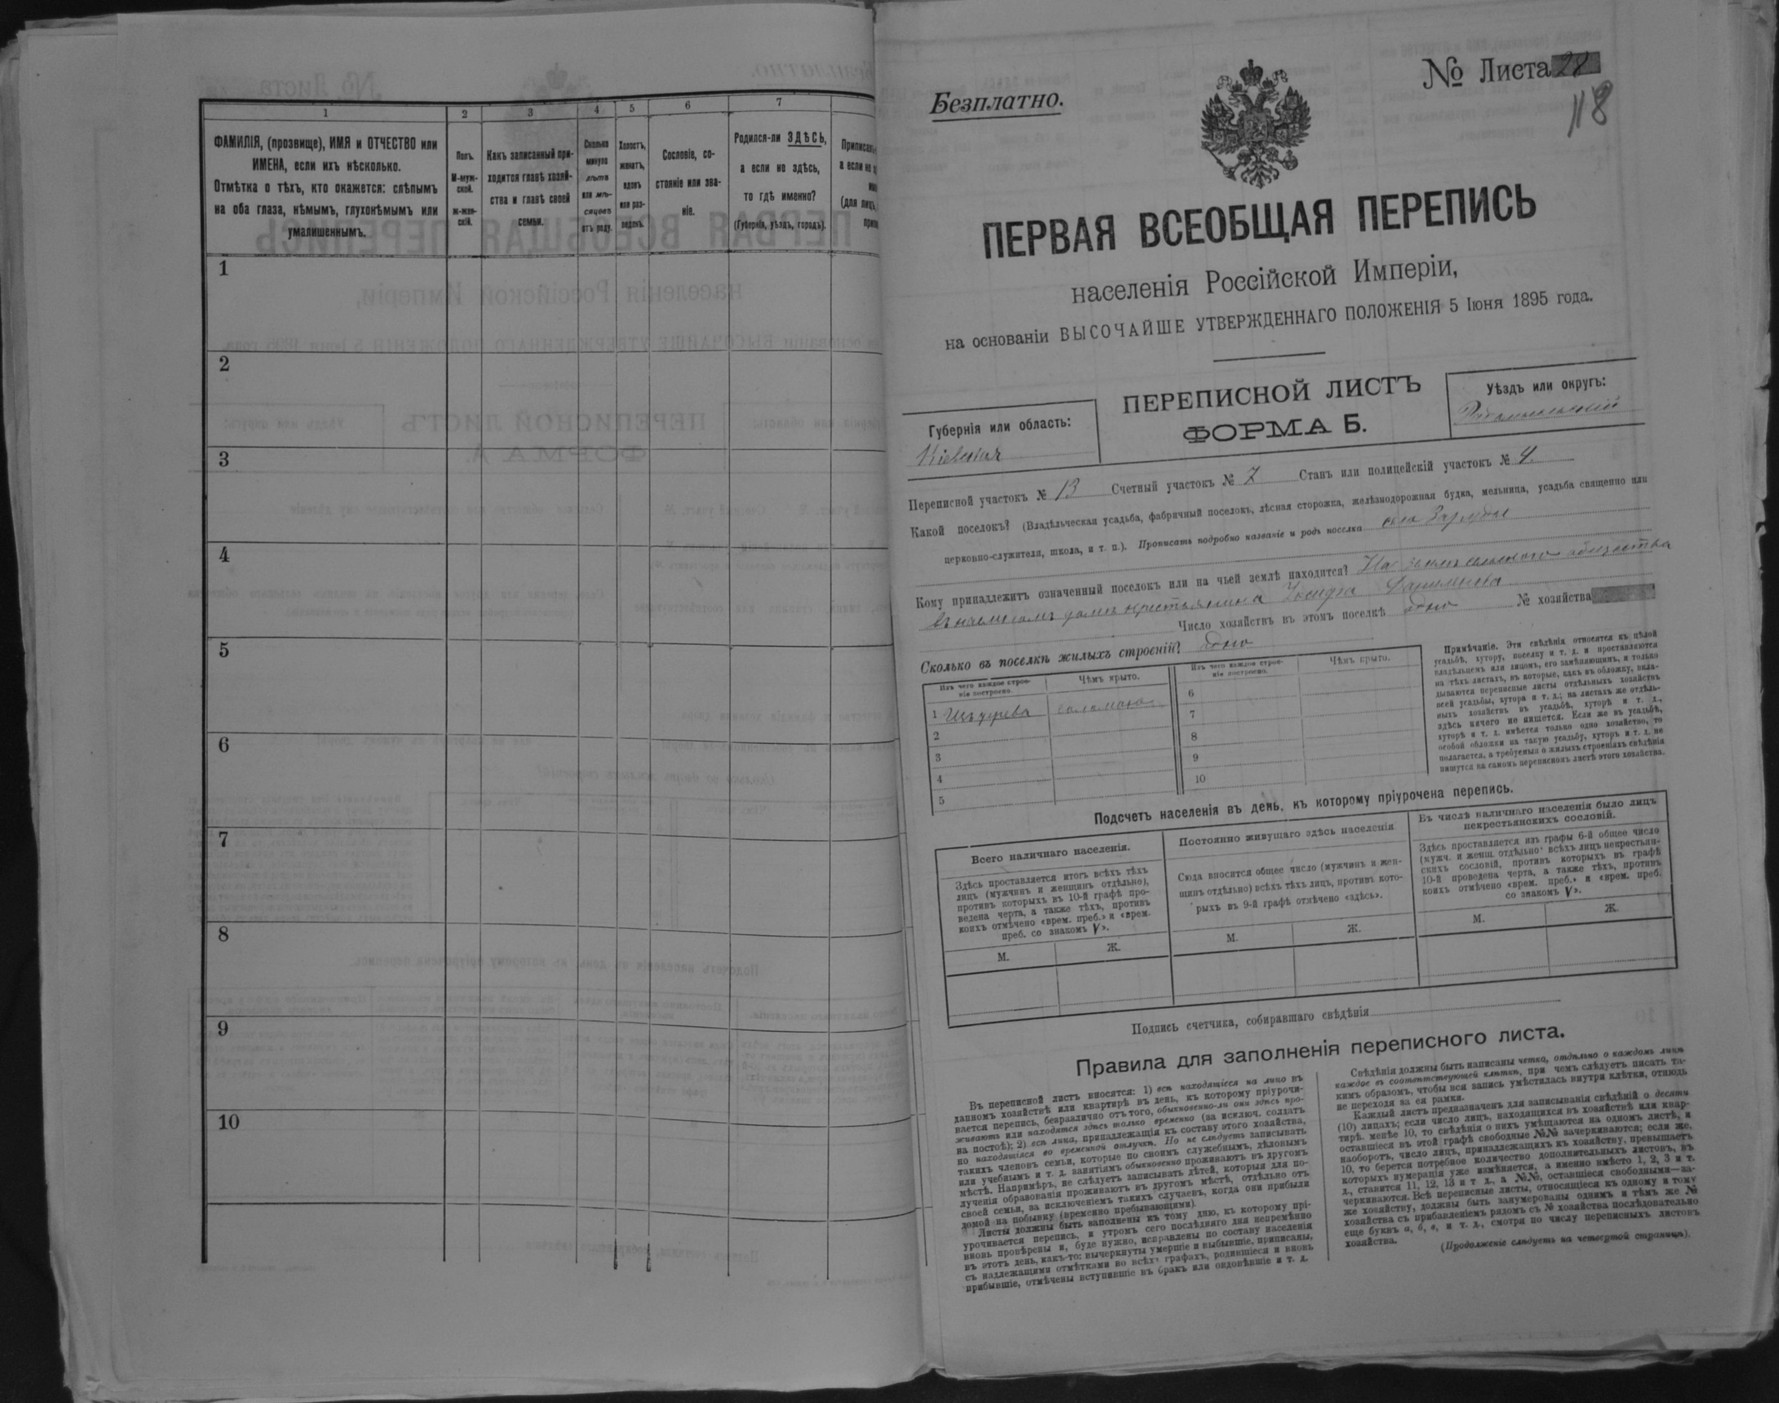 1 2 3 4 5 6 7
ФАМИЛІЯ, (прозвище), ИМЯ и ОТЧЕСТВО или
ИМЕНА, если ихъ нѣсколько.
Отмѣтка о тѣхъ, кто окажется: слѣпымъ
на оба глаза, нѣмымъ, глухонѣмымъ или
умалишеннымъ.
Полъ.
М-муж-
ской.
ж-жен-
скій.
Какъ записанный при-
ходится главѣ хозяй-
ства и главѣ своей
семьи.
Сколько
минуло
лѣтъ
или мѣ-
сяцевъ
отъ роду.
Холостъ,
женатъ,
вдовъ
или раз-
веденъ.
Сословіе, со-
стояніе или зва-
ніе.
Родился-ли ЗДѢСЬ,
а если не здѣсь,
то гдѣ именно?
(Губернія, уѣздъ, городъ).
1
2
3
4
5
6
7
8
9
10
Безплатно.
№ Листа 28
118
ПЕРВАЯ ВСЕОБЩАЯ ПЕРЕПИСЬ
населенія Россійской Имперіи,
на основаніи ВЫСОЧАЙШЕ УТВЕРЖДЕННАГО ПОЛОЖЕНІЯ 5 Іюня 1895 года.
ПЕРЕПИСНОЙ ЛИСТЪ
ФОРМА Б.
Губернія или область:
Кіевская
Уѣздъ или округъ:
Переписной участокъ № 13 Счетный участокъ № 7 Станъ или полицейскій участокъ № 4.
Какой поселокъ? (Владѣльческая усадьба, фабричный поселокъ, лѣсная сторожка, желѣзнодорожная будка, мельница, усадьба священно или
церковно-служителя, школа, и т. п.). Прописать подробно названіе и родъ поселка
Кому принадлежитъ означенный поселокъ или на чьей землѣ находится? На земли сельского общества
крестьянина
Число хозяйствъ въ этомъ поселкѣ одно № хозяйства
Сколько въ поселкѣ жилыхъ строеній? одно
Изъ чего каждое строе-
ніе построено.
Чѣмъ крыто.
Изъ чего каждое строе-
ніе построено.
Чѣмъ крыто.
1 Изъ дерева соломою
2
3
4
5
6
7
8
9
10
Примѣчаніе. Эти свѣдѣнія относятся къ цѣлой
усадьбѣ, хутору, поселку и т. д. и проставляются
владѣльцемъ или лицомъ, его замѣняющимъ, и только
на тѣхъ листахъ, въ которые, какъ въ обложку, вкла-
дываются переписные листы отдѣльныхъ хозяйствъ
всей усадьбы, хутора и т. д.; на листахъ же отдѣль-
ныхъ хозяйствъ въ усадьбѣ, хуторѣ и т. д.,
здѣсь ничего не пишется. Если же въ усадьбѣ,
хуторѣ и т. д. имѣется только одно хозяйство, то
особой обложки на такую усадьбу, хуторъ и т. д. не
полагается, а требуемыя о жилыхъ строеніяхъ свѣдѣнія
пишутся на самомъ переписномъ листѣ этого хозяйства.
Подсчетъ населенія въ день, къ которому пріурочена перепись.
Всего наличнаго населенія.
Здѣсь проставляется итогъ всѣхъ тѣхъ
лицъ (мужчинъ и женщинъ отдѣльно),
противъ которыхъ въ 10-й графѣ про-
ведена черта, а также тѣхъ, противъ
коихъ отмѣчено «врем. преб.» и «врем.
преб. со знакомъ V».
М. Ж.
Постоянно живущаго здѣсь населенія
Сюда вносится общее число (мужчинъ и жен-
щинъ отдѣльно) всѣхъ тѣхъ лицъ, противъ кото-
рыхъ въ 9-й графѣ отмѣчено «здѣсь».
М. Ж.
Въ числѣ наличнаго населенія было лицъ
некрестьянскихъ сословій.
Здѣсь проставляется изъ графы 6-й общее число
(мужч. и женщ. отдѣльно) всѣхъ лицъ некрестьян-
скихъ сословій, противъ которыхъ въ графѣ
10-й проведена черта, а также тѣхъ, противъ
коихъ отмѣчено «врем. преб.» и «врем. преб.
со знакомъ V».
М. Ж.
Подпись счетчика, собиравшаго свѣдѣнія
Правила для заполненія переписного листа.
Въ переписной листъ вносятся: 1) всѣ находящіеся на лицо въ
данномъ хозяйствѣ или квартирѣ въ день, къ которому пріурочи-
вается перепись, безразлично отъ того, обыкновенно-ли они здѣсь про-
живаютъ или находятся здѣсь только временно (за исключ. солдатъ
на постоѣ); 2) всѣ лица, принадлежащія къ составу этого хозяйства,
но находящіяся во временной отлучкѣ. Но не слѣдуетъ записывать
такихъ членовъ семьи, которые по своимъ служебнымъ, дѣловымъ
или учебнымъ и т. д. занятіямъ обыкновенно проживаютъ въ другомъ
мѣстѣ. Напримѣръ, не слѣдуетъ записывать дѣтей, которыя для по-
лученія образованія проживаютъ въ другомъ мѣстѣ, отдѣльно отъ
своей семьи, за исключеніемъ такихъ случаевъ, когда они прибыли
домой на побывку (временно пребывающими).
Листы должны быть заполнены къ тому дню, къ которому прі-
урочивается перепись, и утромъ сего послѣдняго дня непремѣнно
вновь провѣрены и, буде нужно, исправлены по составу населенія
въ этотъ день, какъ-то: вычеркнуты умершіе и выбывшіе, приписаны,
съ надлежащими отмѣтками во всѣхъ графахъ, родившіеся и вновь
прибывшіе, отмѣчены вступившіе въ бракъ или овдовѣвшіе и т. д.
Свѣдѣнія должны быть написаны четко, отдѣльно о каждомъ лицѣ
каждое въ соотвѣтствующей клѣткѣ, при чемъ слѣдуетъ писать та-
кимъ образомъ, чтобы вся запись умѣстилась внутри клѣтки, отнюдь
не переходя за ея рамки.
Каждый листъ предназначенъ для записыванія свѣдѣній о десяти
(10) лицахъ; если число лицъ, находящихся въ хозяйствѣ или квар-
тирѣ, менѣе 10, то свѣдѣнія о нихъ умѣщаются на одномъ листѣ, и
оставшіеся въ этой графѣ свободные №№ зачеркиваются; если же,
наоборотъ, число лицъ, принадлежащихъ къ хозяйству, превышаетъ
10, то берется потребное количество дополнительныхъ листовъ, въ
которыхъ нумерація уже измѣняется, а именно вмѣсто 1, 2, 3 и т.
д., ставится 11, 12, 13 и т. д., а №№, оставшіеся свободными—за-
черкиваются. Всѣ переписные листы, относящіеся къ одному и тому
же хозяйству, должны быть занумерованы однимъ и тѣмъ же №
хозяйства съ прибавленіемъ рядомъ съ № хозяйства послѣдовательно
еще буквъ а, б, в, и т. д., смотря по числу переписныхъ листовъ
хозяйства.
(Продолженіе слѣдуетъ на четвертой страницѣ).